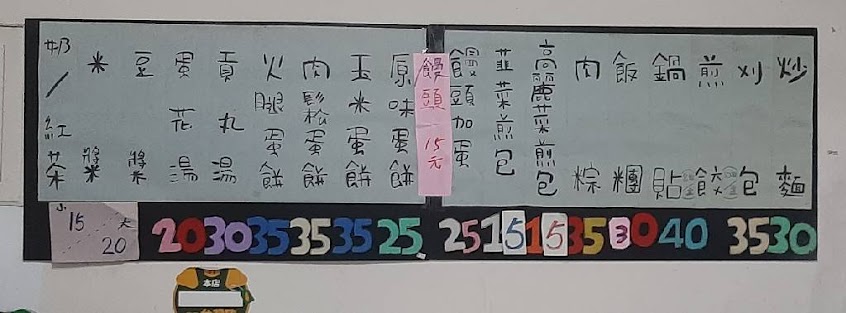 炒麵
刈包
煎餃
鍋貼
飯糰
肉粽
高麗菜煎包
韭菜煎包
饅頭加蛋
饅頭 15元
原味蛋餅
玉米蛋餅
肉鬆蛋餅
火腿蛋餅
貢丸湯
蛋花湯
豆漿
米漿
奶/紅茶
小15 大20
20 30 35 35 35 25 25 15 15 35 30 40 35 30
本店